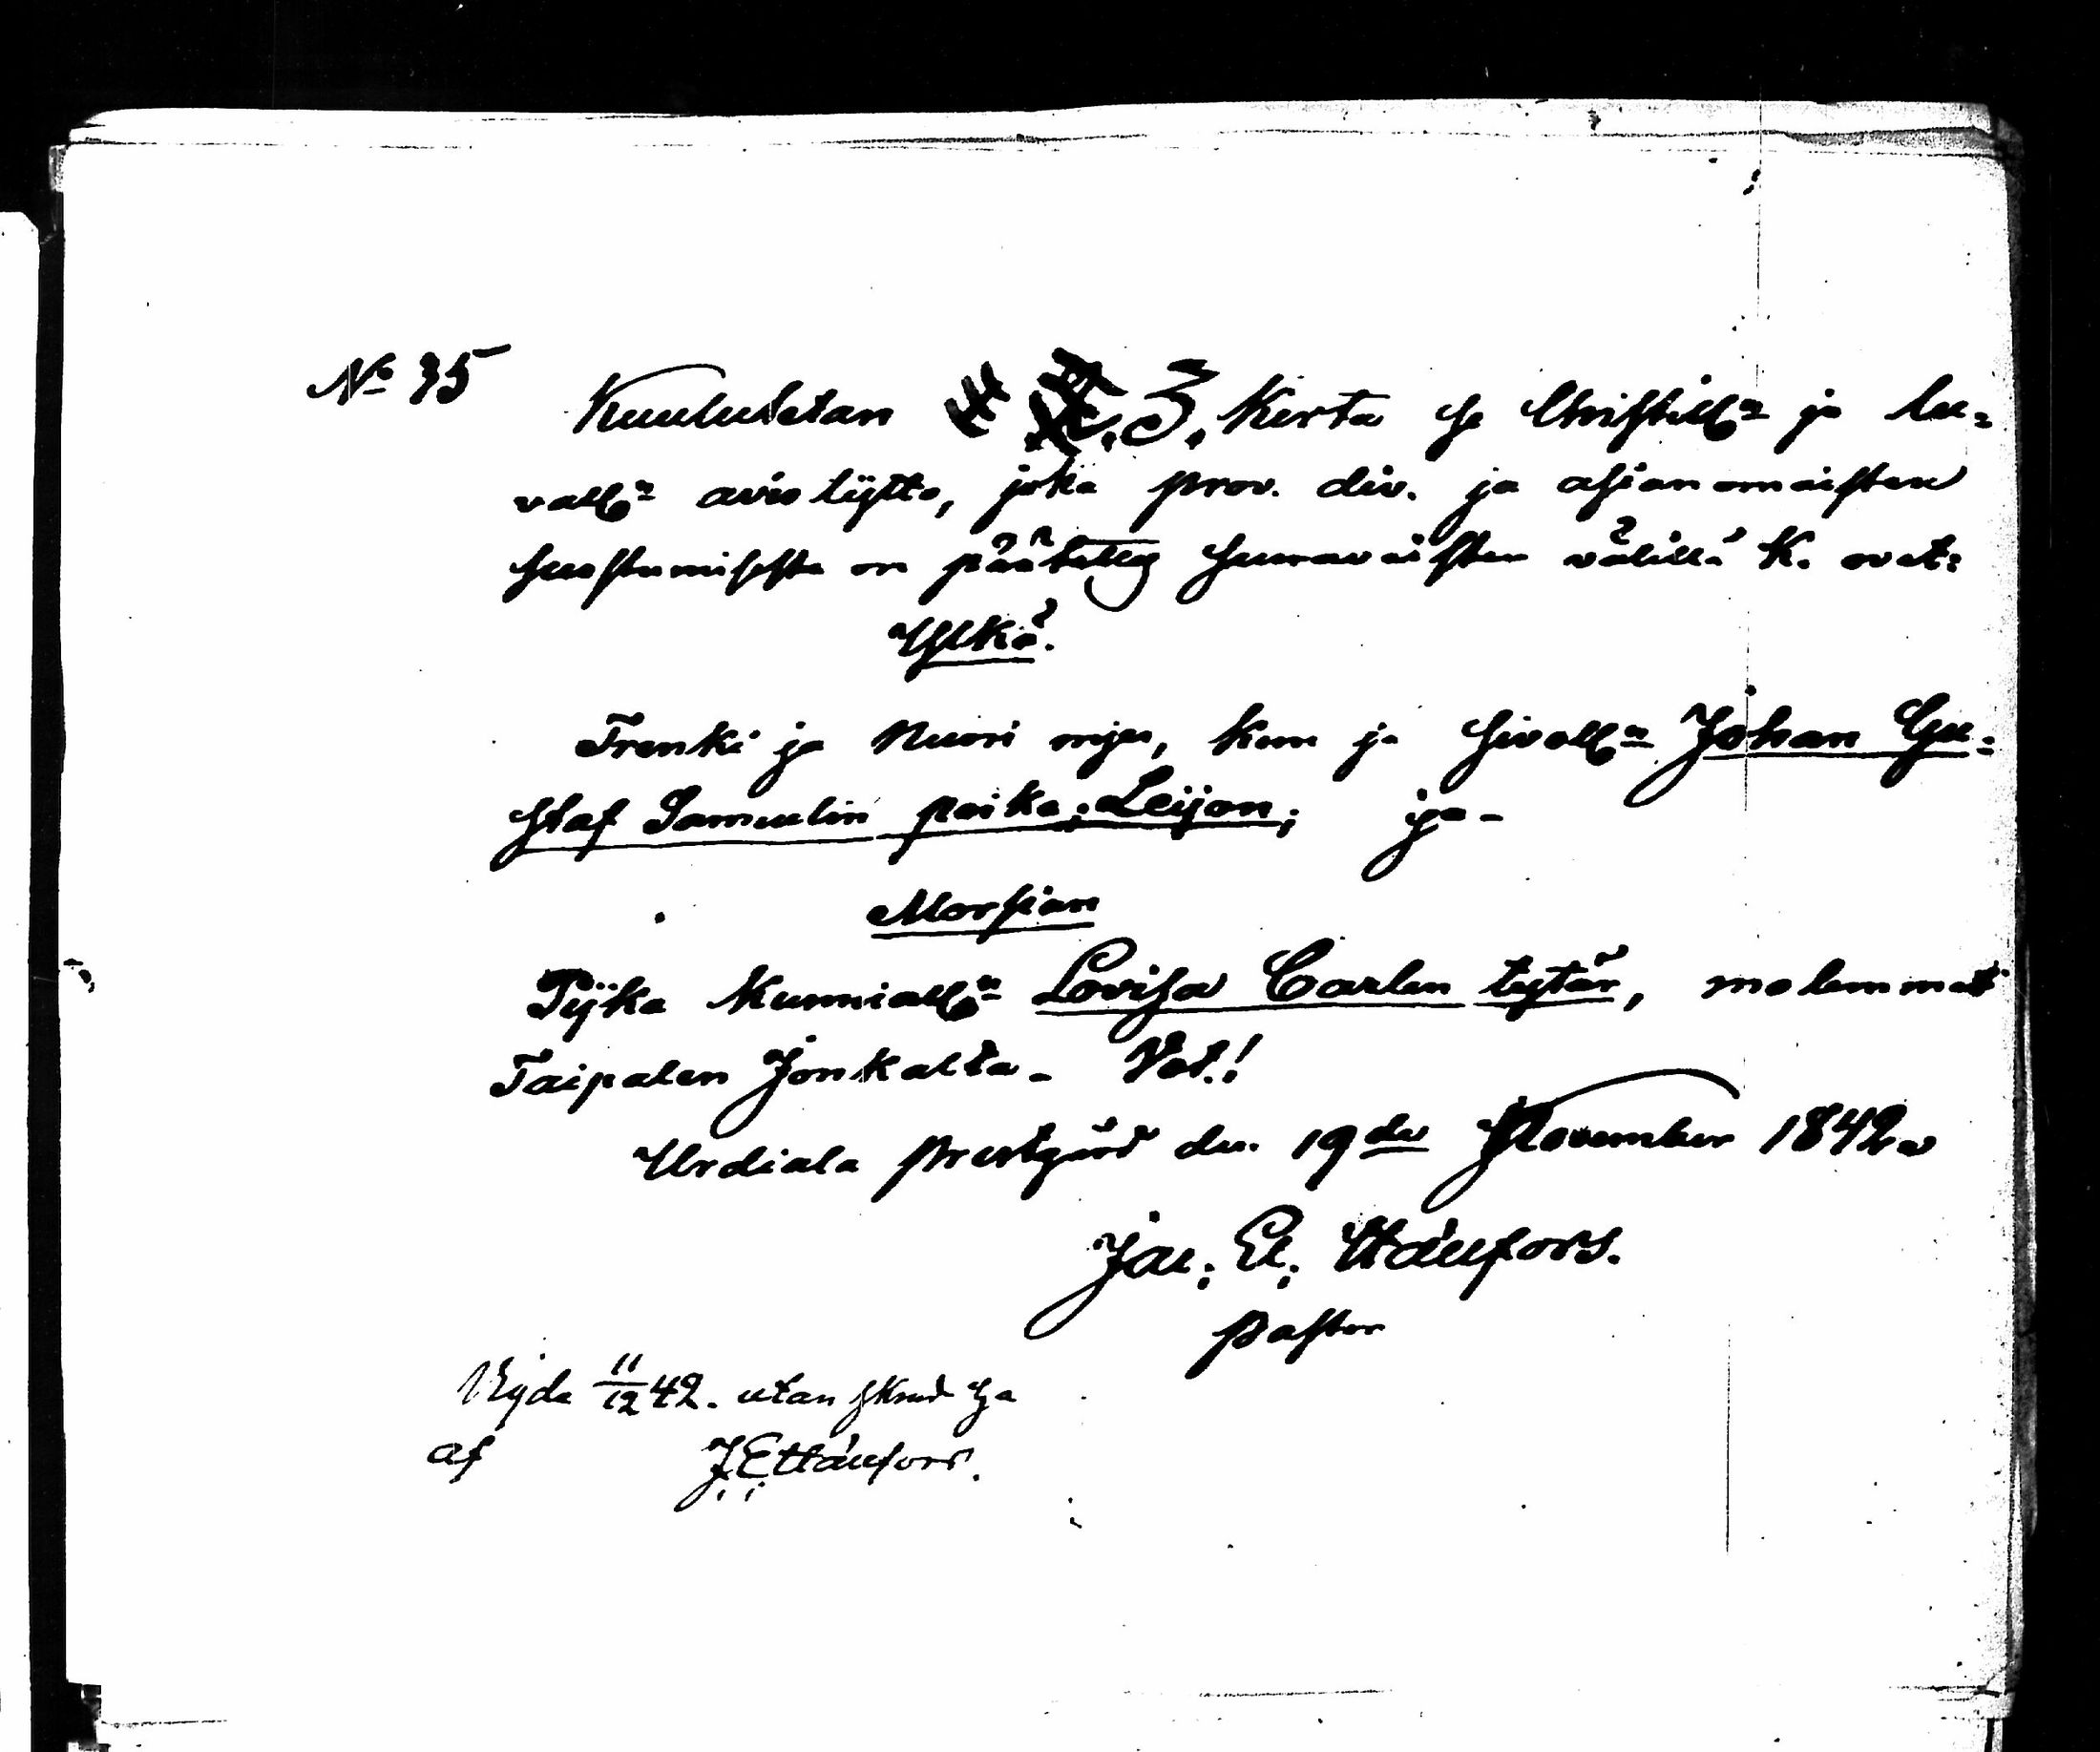 No 35 Kuulutetan 3. Kerta se Christill:n ja lu=
vall:n avio lijtto, joka prov. div. ja asianomaisten
suostumisesta on päätetty seuravaisten välillä K. ovat:
Ylkä.
Trenki ja Nuori mjes, kun ja sivoll:n Johan Gu=
staf Samuelin poika Leijon; ja -
Morsian
Pijka Kunniall:n Lovisa Carlen tytär, molemmat
Taipalen Jonkalta. Vot.!
Urdiala prestgård den 19de November 1842
Jac: Ed: Hänfors.
pastor
Vigda 11/12 42. utan skrud
af J: E: Hänfors.